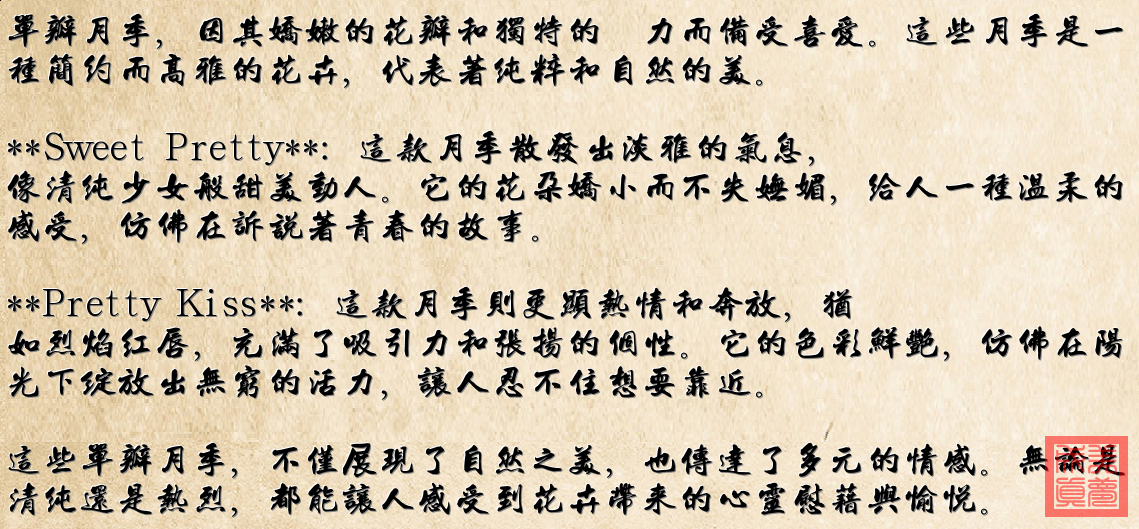 單瓣月季，因其嬌嫩的花瓣和獨特的　力而備受喜愛。這些月季是一
種簡約而高雅的花卉，代表著純粹和自然的美。
**Sweet Pretty**: 這款月季散發出淡雅的氣息，
像清純少女般甜美動人。它的花朵嬌小而不失嫵媚，給人一種溫柔的
感受，仿佛在訴說著青春的故事。
**Pretty Kiss**: 這款月季則更顯熱情和奔放，猶
如烈焰紅唇，充滿了吸引力和張揚的個性。它的色彩鮮艷，仿佛在陽
光下綻放出無窮的活力，讓人忍不住想要靠近。
這些單瓣月季，不僅展現了自然之美，也傳達了多元的情感。無論是
清純還是熱烈，都能讓人感受到花卉帶來的心靈慰藉與愉悅。